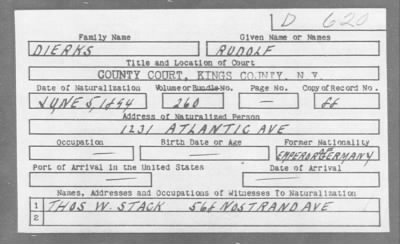 D 620
Family Name Given Name or Names
DIERKS RUDOLF
Title and Location of Court
COUNTY COURT, KINGS COUNTY, N.Y.
Date of Naturalization Volume or Bundle No. Page No. Copy of Record No.
JUNE 5, 1894 260 — 66
Address of Naturalized Person
1231 ATLANTIC AVE
Occupation Birth Date or Age Former Nationality
— — EMPEROR OF GERMANY
Port of Arrival in the United States Date of Arrival
— —
Names, Addresses and Occupations of Witnesses To Naturalization
1 THOS W. STACK 568 NOSTRAND AVE
2